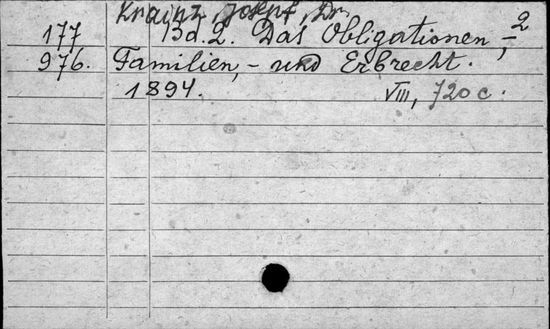 Krainz, Josef, Dr.
177 Bd. 2. Das Obligationen,- 2
976. Familien,- und Erbrecht.
1894. VIII, 720 c.